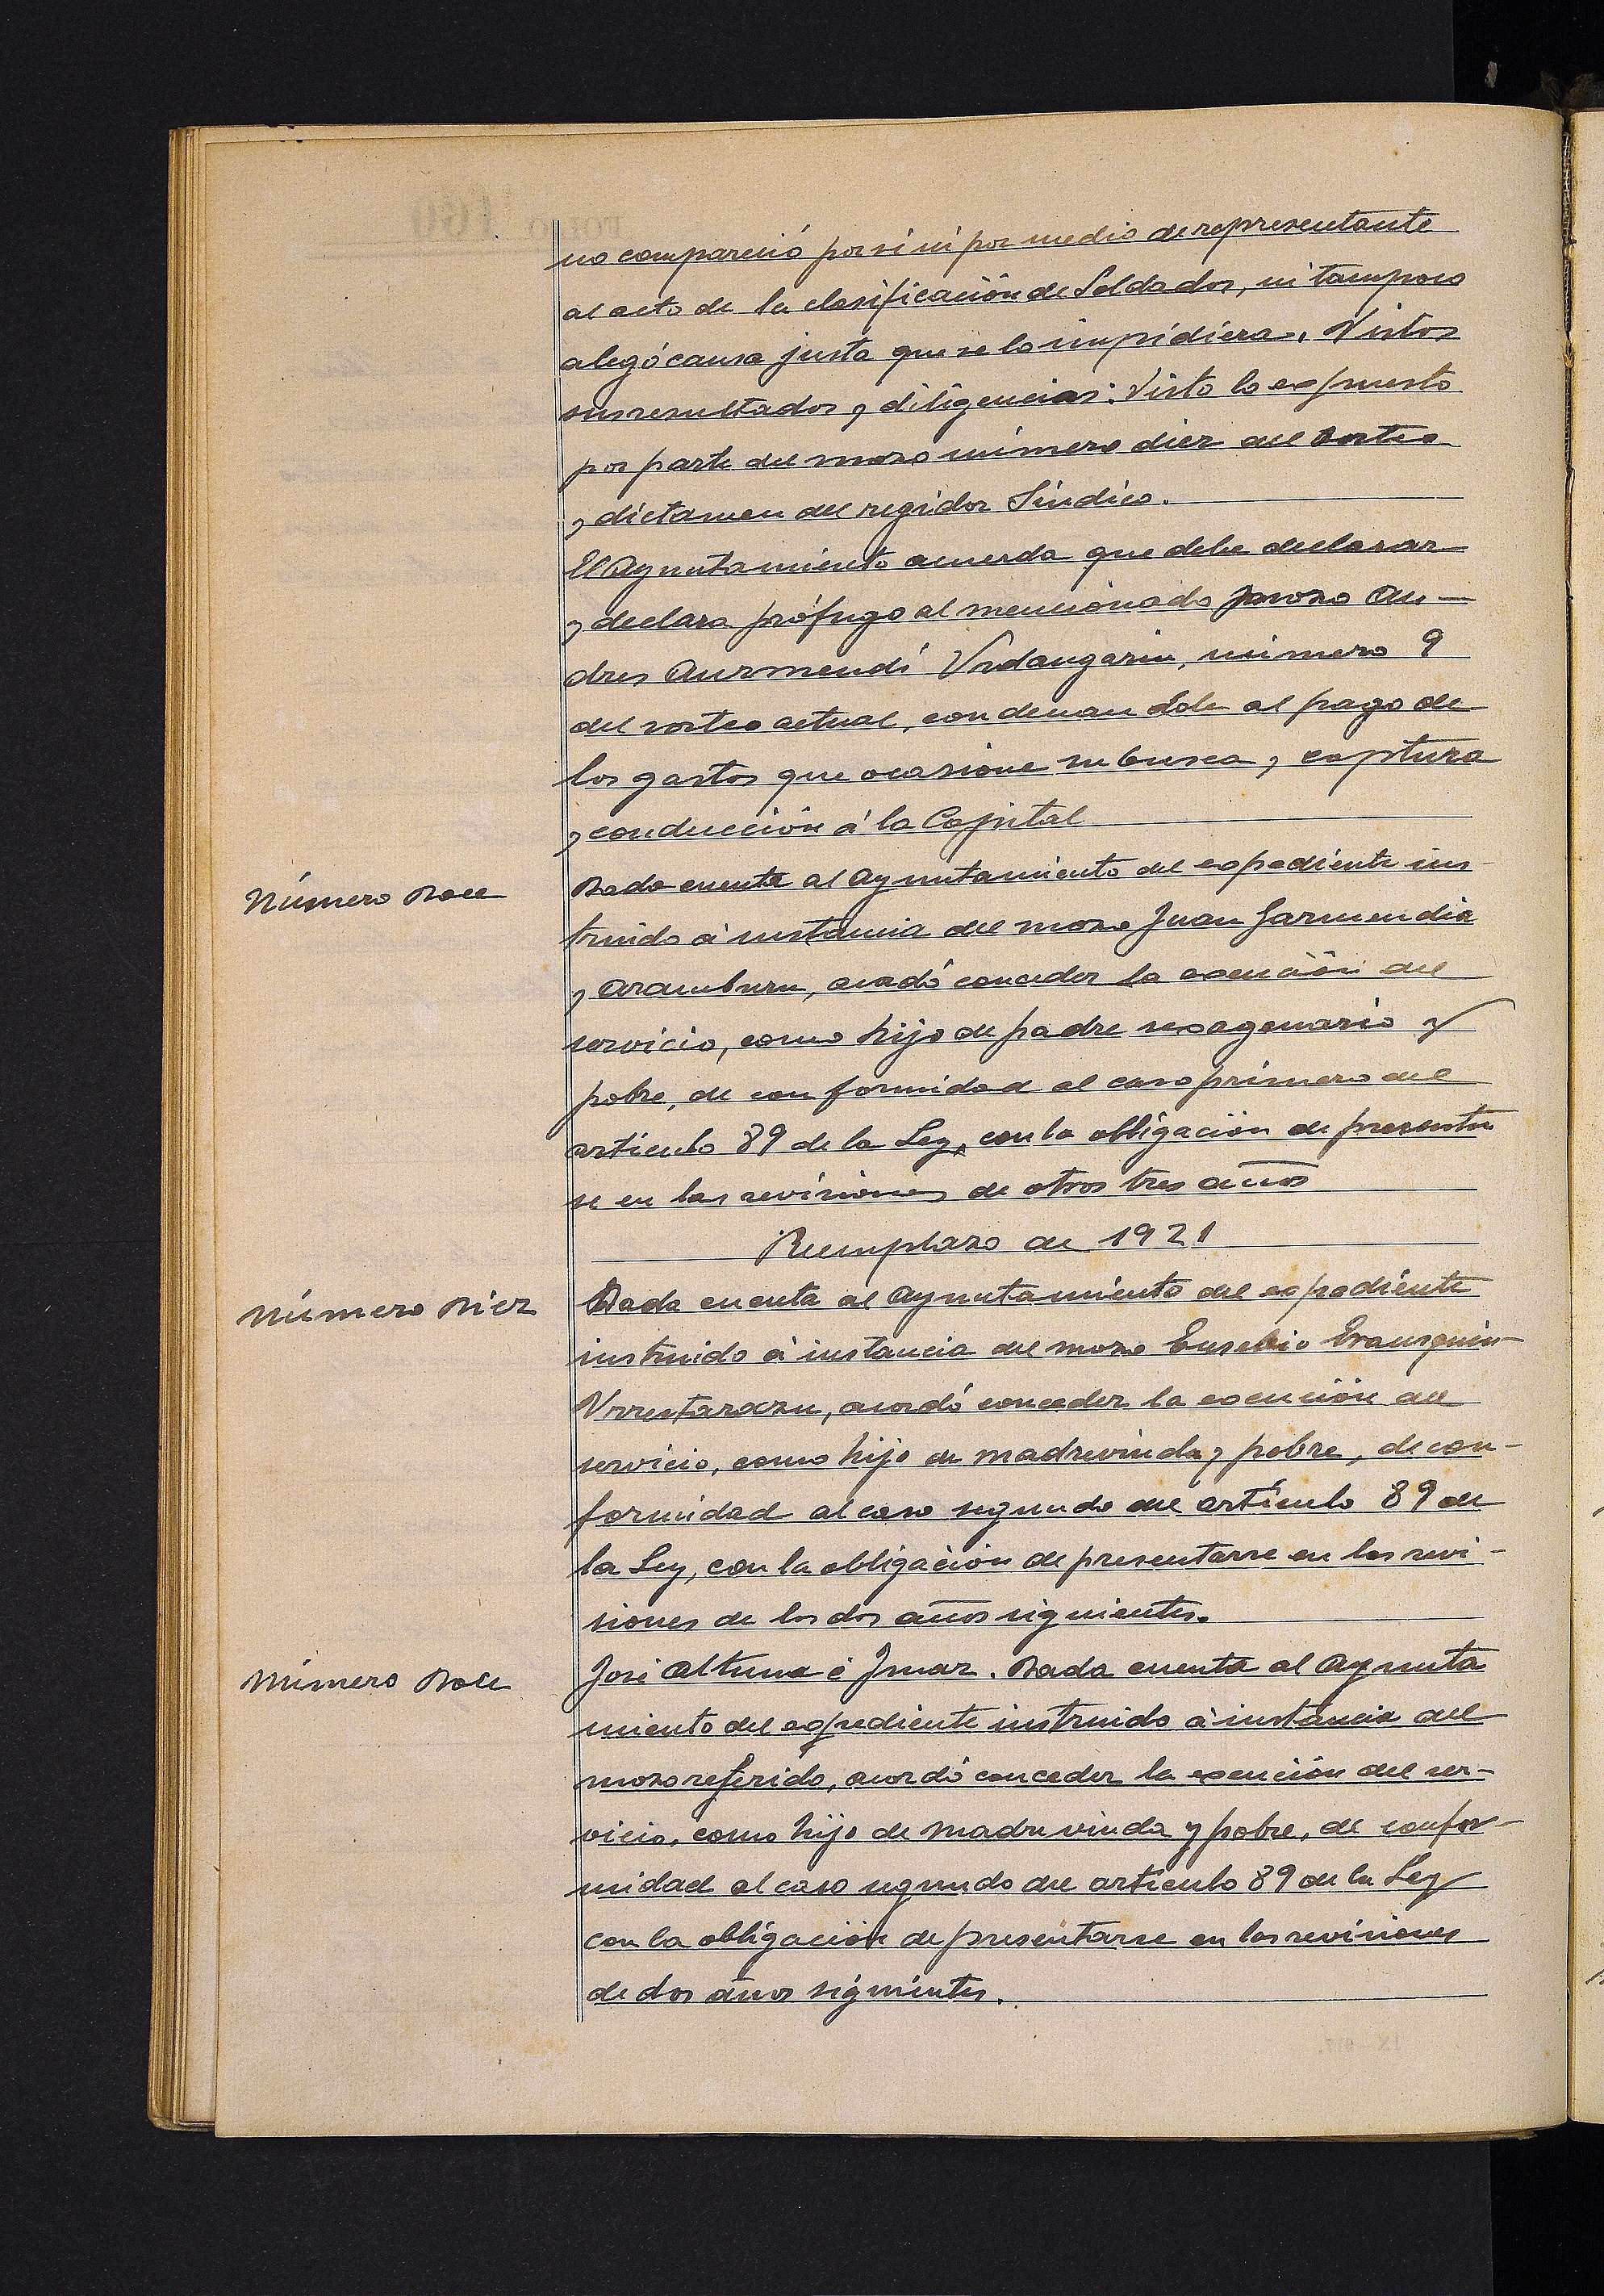 no compareció por si ni por medio de representante
al acto de la clasificación de Soldados, ni tampoco
alegó causa justa que se lo impidiera. Vistos
sus resultados y diligencias: Visto lo expuesto
por parte del mozo número diez del sorteo
y dictamen del regidor Síndico.
El Ayuntamiento acuerda que debe declarar
y declara prófugo al mencionado mozo An-
dres Aurmendi Urdangarin, número 9
del sorteo actual, condenandole al pago de
los gastos que ocasione su busca, captura
y conducción á la Capital
Número Doce
Dada cuenta al Ayuntamiento del expediente ins-
truido á instancia del mozo Juan Garmendia
y Aramburu, acordó conceder la exención del
servicio, como hijo de padre sexagenario y
pobre, de conformidad al caso primero del
articulo 89 de la Ley, con la obligación de presentar
se en las revisiones de otros tres años
Reemplazo de 1921
Número Diez
Dada cuenta al Ayuntamiento del expediente
instruido á instancia del mozo Eusebio Erausquin
Urrestarazu, acordó conceder la exención del
servicio, como hijo de madre viuda y pobre, de con-
formidad al caso segundo del artículo 89 de
la Ley, con la obligación de presentarse en las revi-
siones de los dos años siguientes.
Número Doce
José Altuna é Imaz. Dada cuenta al Ayunta
miento del expediente instruido á instancia del
mozo referido, acordó conceder la exención del ser-
vicio, como hijo de madre viuda y pobre, de confor-
midad al caso segundo del artículo 89 de la Ley
con la obligación de presentarse en las revisiones
de dos años siguientes.